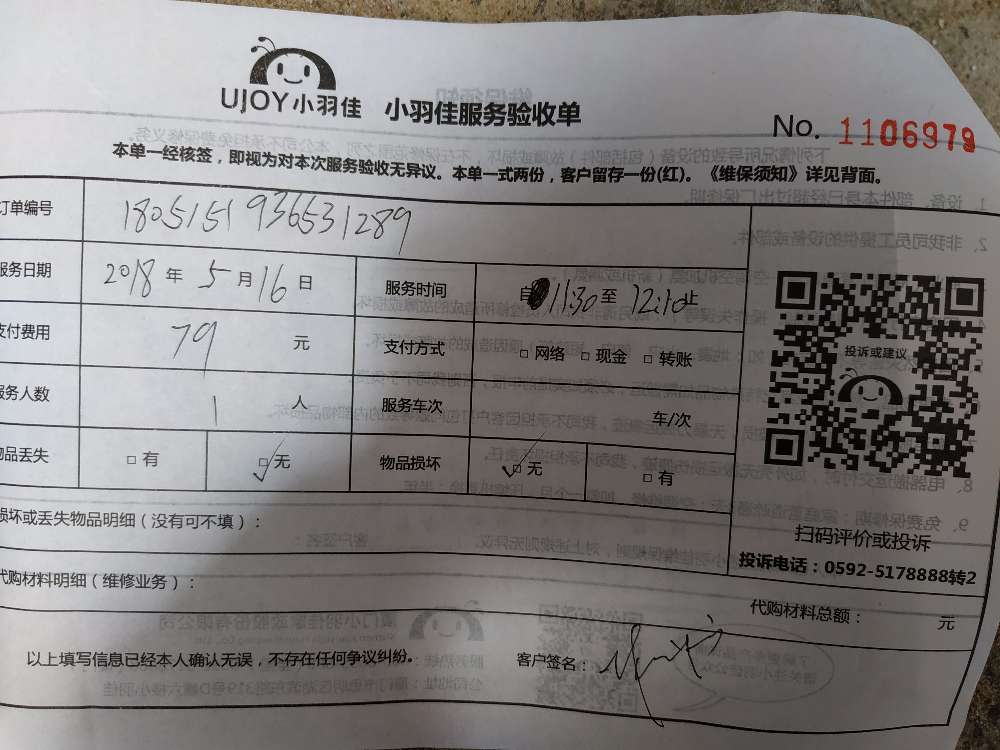 UJOY小羽佳 小羽佳服务验收单
No. 1106979
本单一经核签，即视为对本次服务验收无异议。本单一式两份，客户留存一份(红)。《维保须知》详见背面。
订单编号 180515193653 1289
服务日期 2018 年 5 月 16 日 服务时间 自 11:30 至 12:10 止
支付费用 79 元 支付方式 □ 网络 □ 现金 □ 转账
服务人数 1 人 服务车次 车/次
物品丢失 □ 有 □ 无 物品损坏 □ 无 □ 有
投诉或建议
扫码评价或投诉
投诉电话：0592-5178888转2
损坏或丢失物品明细（没有可不填）：
代购材料明细（维修业务）：
代购材料总额： 元
以上填写信息已经本人确认无误，不存在任何争议纠纷。 客户签名：